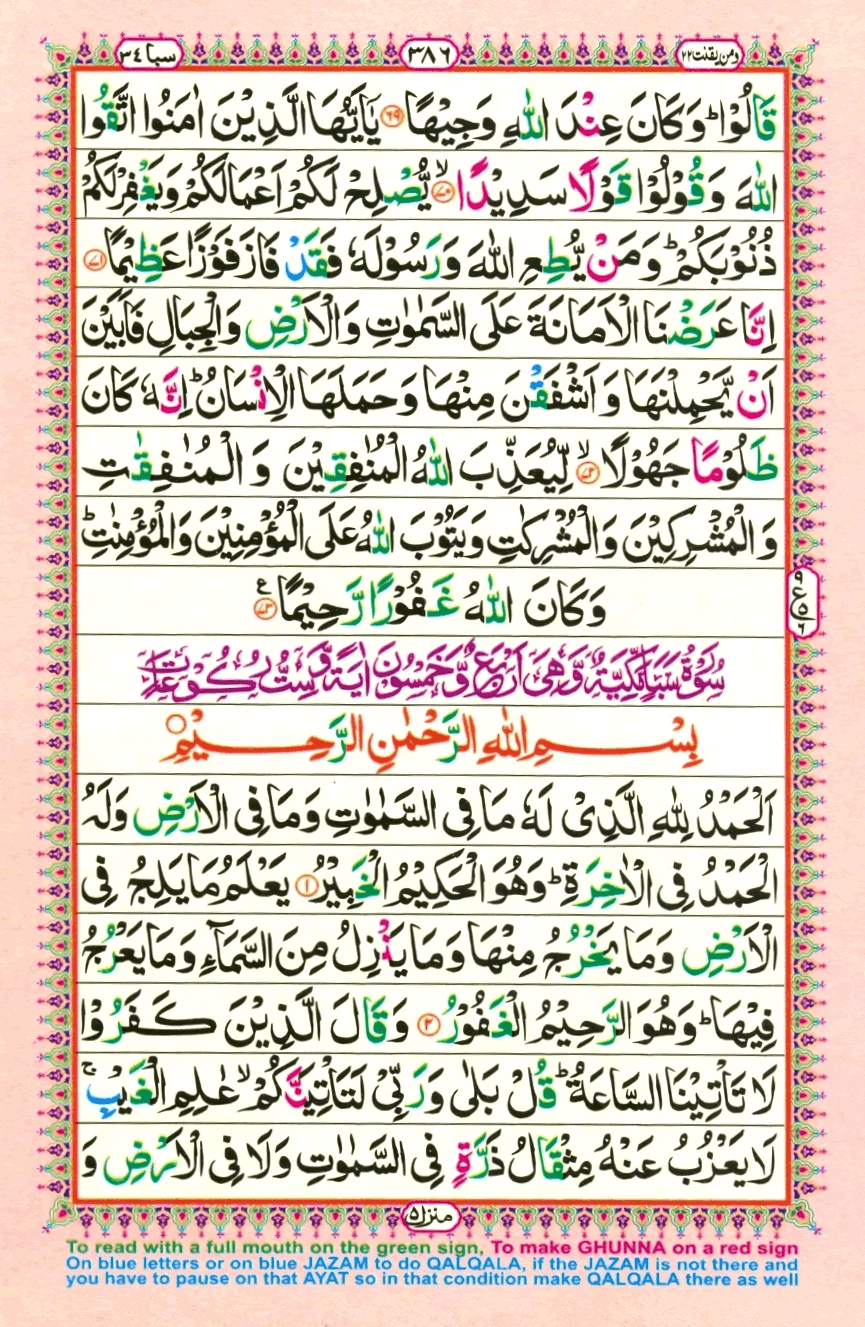 ومن یقنت ۲۲
۳۸۶
سبا ۳٤
قَالُوْا ؕ وَكَانَ عِنْدَ اللّٰهِ وَجِیْهًا ﴿۶۹﴾ یٰۤاَیُّهَا الَّذِیْنَ اٰمَنُوا اتَّقُوا
اللّٰهَ وَقُوْلُوْا قَوْلًا سَدِیْدًا ﴿۷۰﴾ۙ یُّصْلِحْ لَكُمْ اَعْمَالَكُمْ وَیَغْفِرْ لَكُمْ
ذُنُوْبَكُمْ ؕ وَمَنْ یُّطِعِ اللّٰهَ وَرَسُوْلَهٗ فَقَدْ فَازَ فَوْزًا عَظِیْمًا ﴿۷۱﴾
اِنَّا عَرَضْنَا الْاَمَانَةَ عَلَی السَّمٰوٰتِ وَالْاَرْضِ وَالْجِبَالِ فَاَبَیْنَ
اَنْ یَّحْمِلْنَهَا وَاَشْفَقْنَ مِنْهَا وَحَمَلَهَا الْاِنْسَانُ ؕ اِنَّهٗ كَانَ
ظَلُوْمًا جَهُوْلًا ﴿۷۲﴾ۙ لِّیُعَذِّبَ اللّٰهُ الْمُنٰفِقِیْنَ وَ الْمُنٰفِقٰتِ
وَالْمُشْرِكِیْنَ وَالْمُشْرِكٰتِ وَیَتُوْبَ اللّٰهُ عَلَی الْمُؤْمِنِیْنَ وَالْمُؤْمِنٰتِ ؕ
وَكَانَ اللّٰهُ غَفُوْرًا رَّحِیْمًا ﴿۷۳﴾ع
سُوْرَةُ سَبَاٍ مَّكِّیَّةٌ وَّهِیَ اَرْبَعٌ وَّخَمْسُوْنَ اٰیَةً وَّسِتُّ رُكُوْعَاتٍ
بِسْمِ اللّٰهِ الرَّحْمٰنِ الرَّحِیْمِ
اَلْحَمْدُ لِلّٰهِ الَّذِیْ لَهٗ مَا فِی السَّمٰوٰتِ وَمَا فِی الْاَرْضِ وَلَهُ
الْحَمْدُ فِی الْاٰخِرَةِ ؕ وَهُوَ الْحَكِیْمُ الْخَبِیْرُ ﴿۱﴾ یَعْلَمُ مَا یَلِجُ فِی
الْاَرْضِ وَمَا یَخْرُجُ مِنْهَا وَمَا یَنْزِلُ مِنَ السَّمَآءِ وَمَا یَعْرُجُ
فِیْهَا ؕ وَهُوَ الرَّحِیْمُ الْغَفُوْرُ ﴿۲﴾ وَقَالَ الَّذِیْنَ كَفَرُوْا
لَا تَاْتِیْنَا السَّاعَةُ ؕ قُلْ بَلٰی وَرَبِّیْ لَتَاْتِیَنَّكُمْ ۙ عٰلِمِ الْغَیْبِ ۚ
لَا یَعْزُبُ عَنْهُ مِثْقَالُ ذَرَّةٍ فِی السَّمٰوٰتِ وَلَا فِی الْاَرْضِ وَ
منزل ۵
To read with a full mouth on the green sign, To make GHUNNA on a red sign
On blue letters or on blue JAZAM to do QALQALA, if the JAZAM is not there and
you have to pause on that AYAT so in that condition make QALQALA there as well